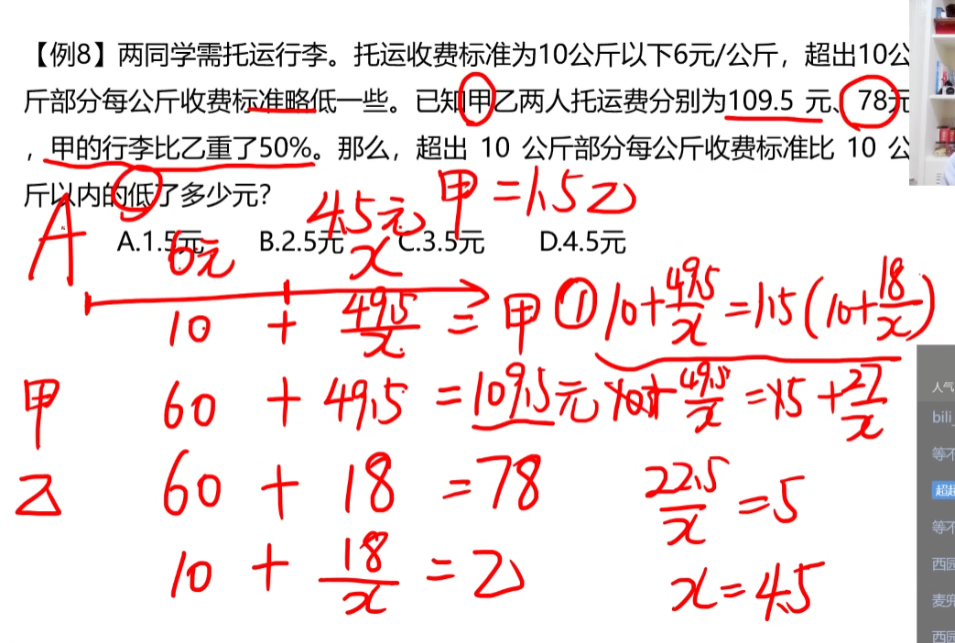 【例8】两同学需托运行李。托运收费标准为10公斤以下6元/公斤，超出10公
斤部分每公斤收费标准略低一些。已知甲乙两人托运费分别为109.5 元、78元
，甲的行李比乙重了50%。那么，超出 10 公斤部分每公斤收费标准比 10 公
斤以内的低了多少元？
甲=1.5乙
A
A.1.5元 B.2.5元 C.3.5元 D.4.5元
6元 4.5元
x
10 + 49.5/x = 甲 ① 10+49.5/x=1.5(10+18/x)
甲 60 + 49.5 = 109.5元
49.5/x = 5 + 27/x
乙 60 + 18 = 78
22.5/x = 5
10 + 18/x = 乙
x = 4.5
人气
bili_
等不
超超
等不
西园
麦兜
西园